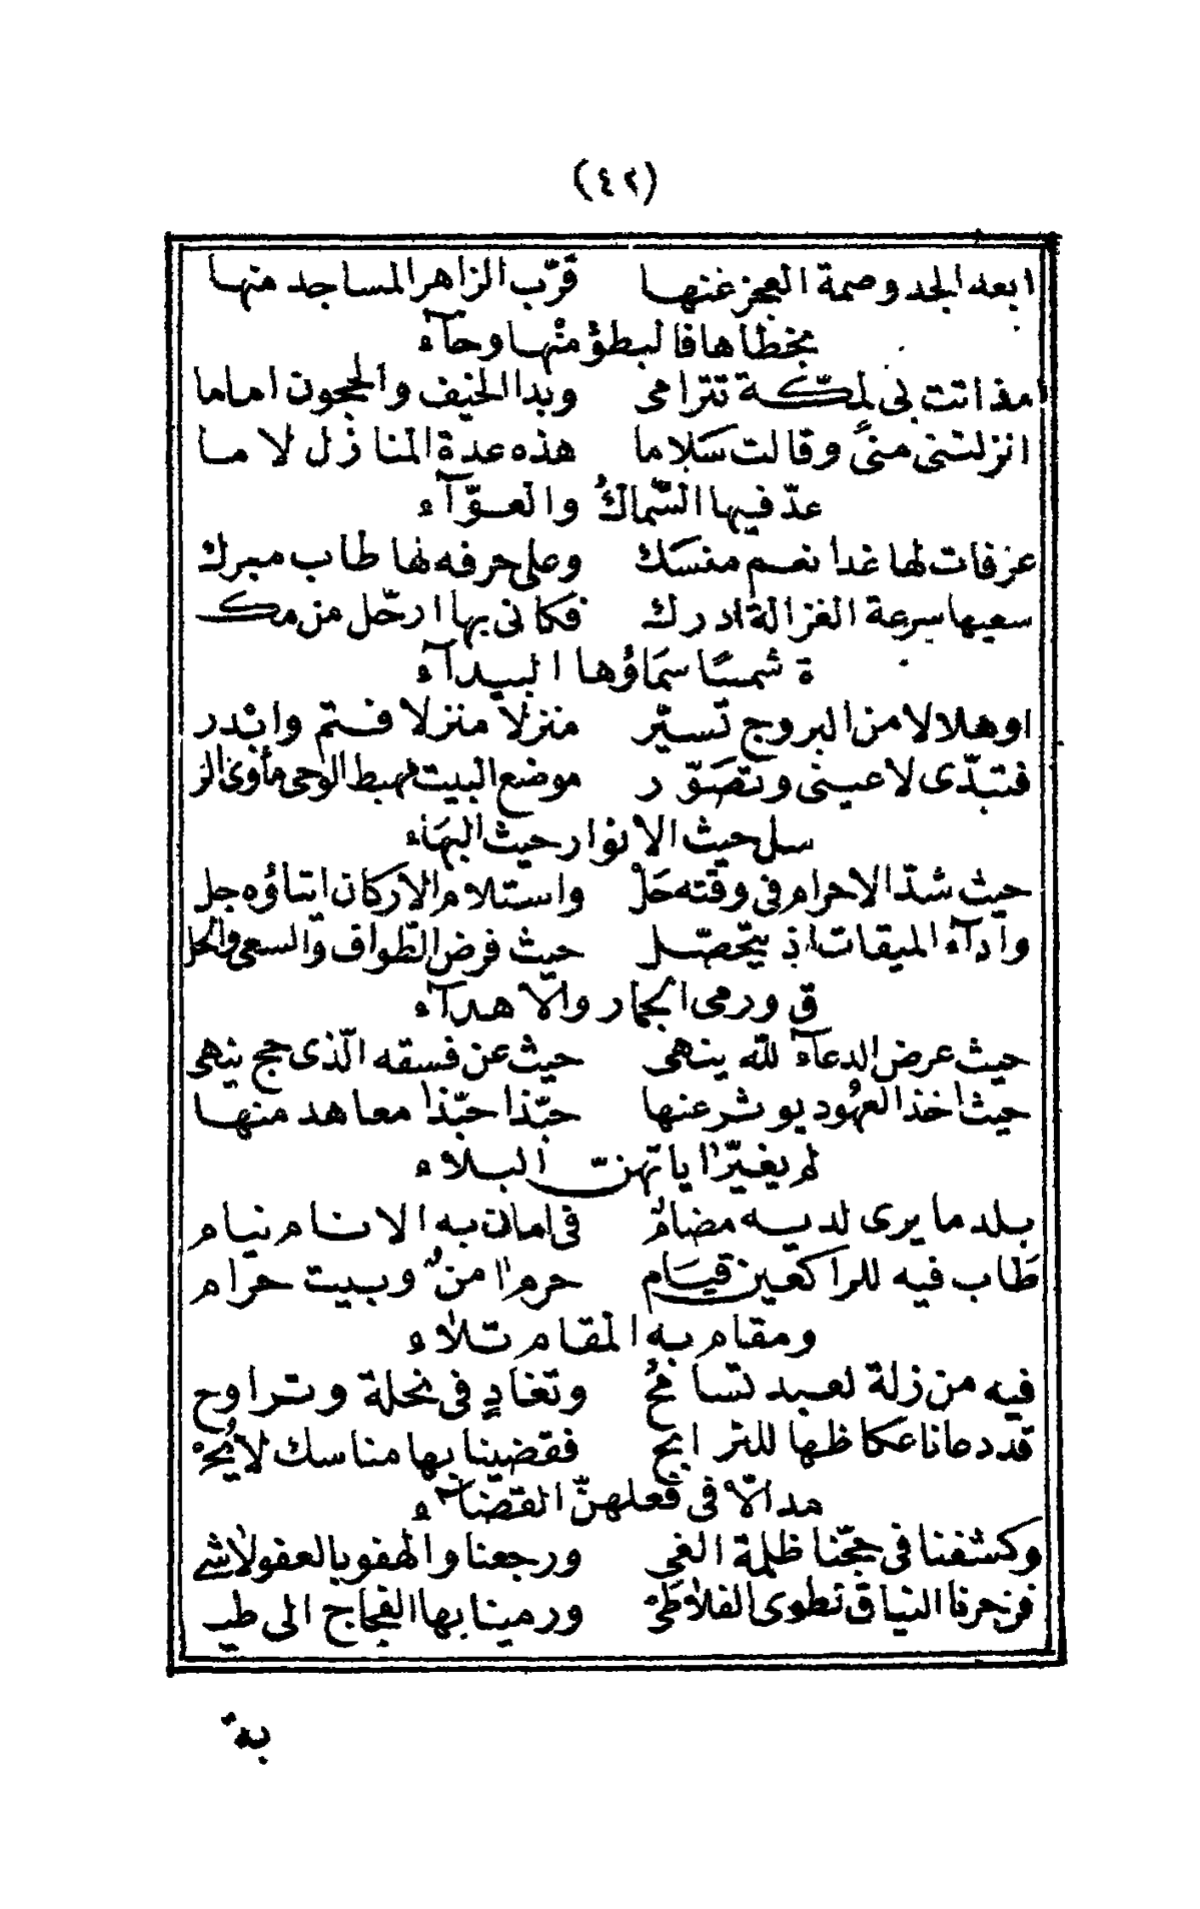 (٤٢)
ابعد الجد وصمة العجز عنها قرّب الزاهر المساجد منها
بخطاها فالبطؤ منها وحآء
مذ اتت بى لمكّة تترامى وبدا الخيف والحجون اماما
انزلتنى منىً وقالت سَلاما هذه عدة المنازل لا ما
عدّ فيها السّماكُ والعوّآء
عرفات لها غدا نعم منسَك وعلى حرفه لها طاب مبرك
سعيها سرعة الغزالة ادرك فكانى بها ارحّل من مك
ة شمسًا سمَاؤها البيدآء
اوهلالا من البروج تسيّر منزلاً منزلا فتم وابْدر
فتبدّى لاعينى وتصَوّر موضع البيت مهبط الوحى مأوى الر
سل حيث الانوار حيث البهَاء
حيث شدّ الاحرام فى وقته حَلْ واستلام الاركان ايتاؤه جل
وادآء الميقات اذ يتحّصّل حيث فرض الطّواف والسعى والحل
ق ورمى الجمار والاهدآء
حيث عرض الدعآء للّه ينهى حيث عن فسقه الّذى حج ينهى
حيث اخذ العهُود يوثر عنها حبّذا حبّذا معاهد منها
لم يغيّر اياتهنّ البلاء
بلد ما يرى لديه مضامٌ فى امان به الانام نيام
طَاب فيه للراكعين قيَام حرم امنٌ وبيت حرام
ومقام به المقام تلاء
فيه من زلة لعبد تسامُح وتغادٍ فى نحلة وتراوح
قد دعانا عكاظها للترابح فقضينا بها مناسك لايُحْ
مد الاّ فى فعلهنّ القضآء
وكشفنا فى حجّنا ظلمة الغى ورجعنا والهفو بالعفو لاشى
فزجرنا النياق تطوى الفلا طىْ ورمينا بها الفجاج الى طي
بة